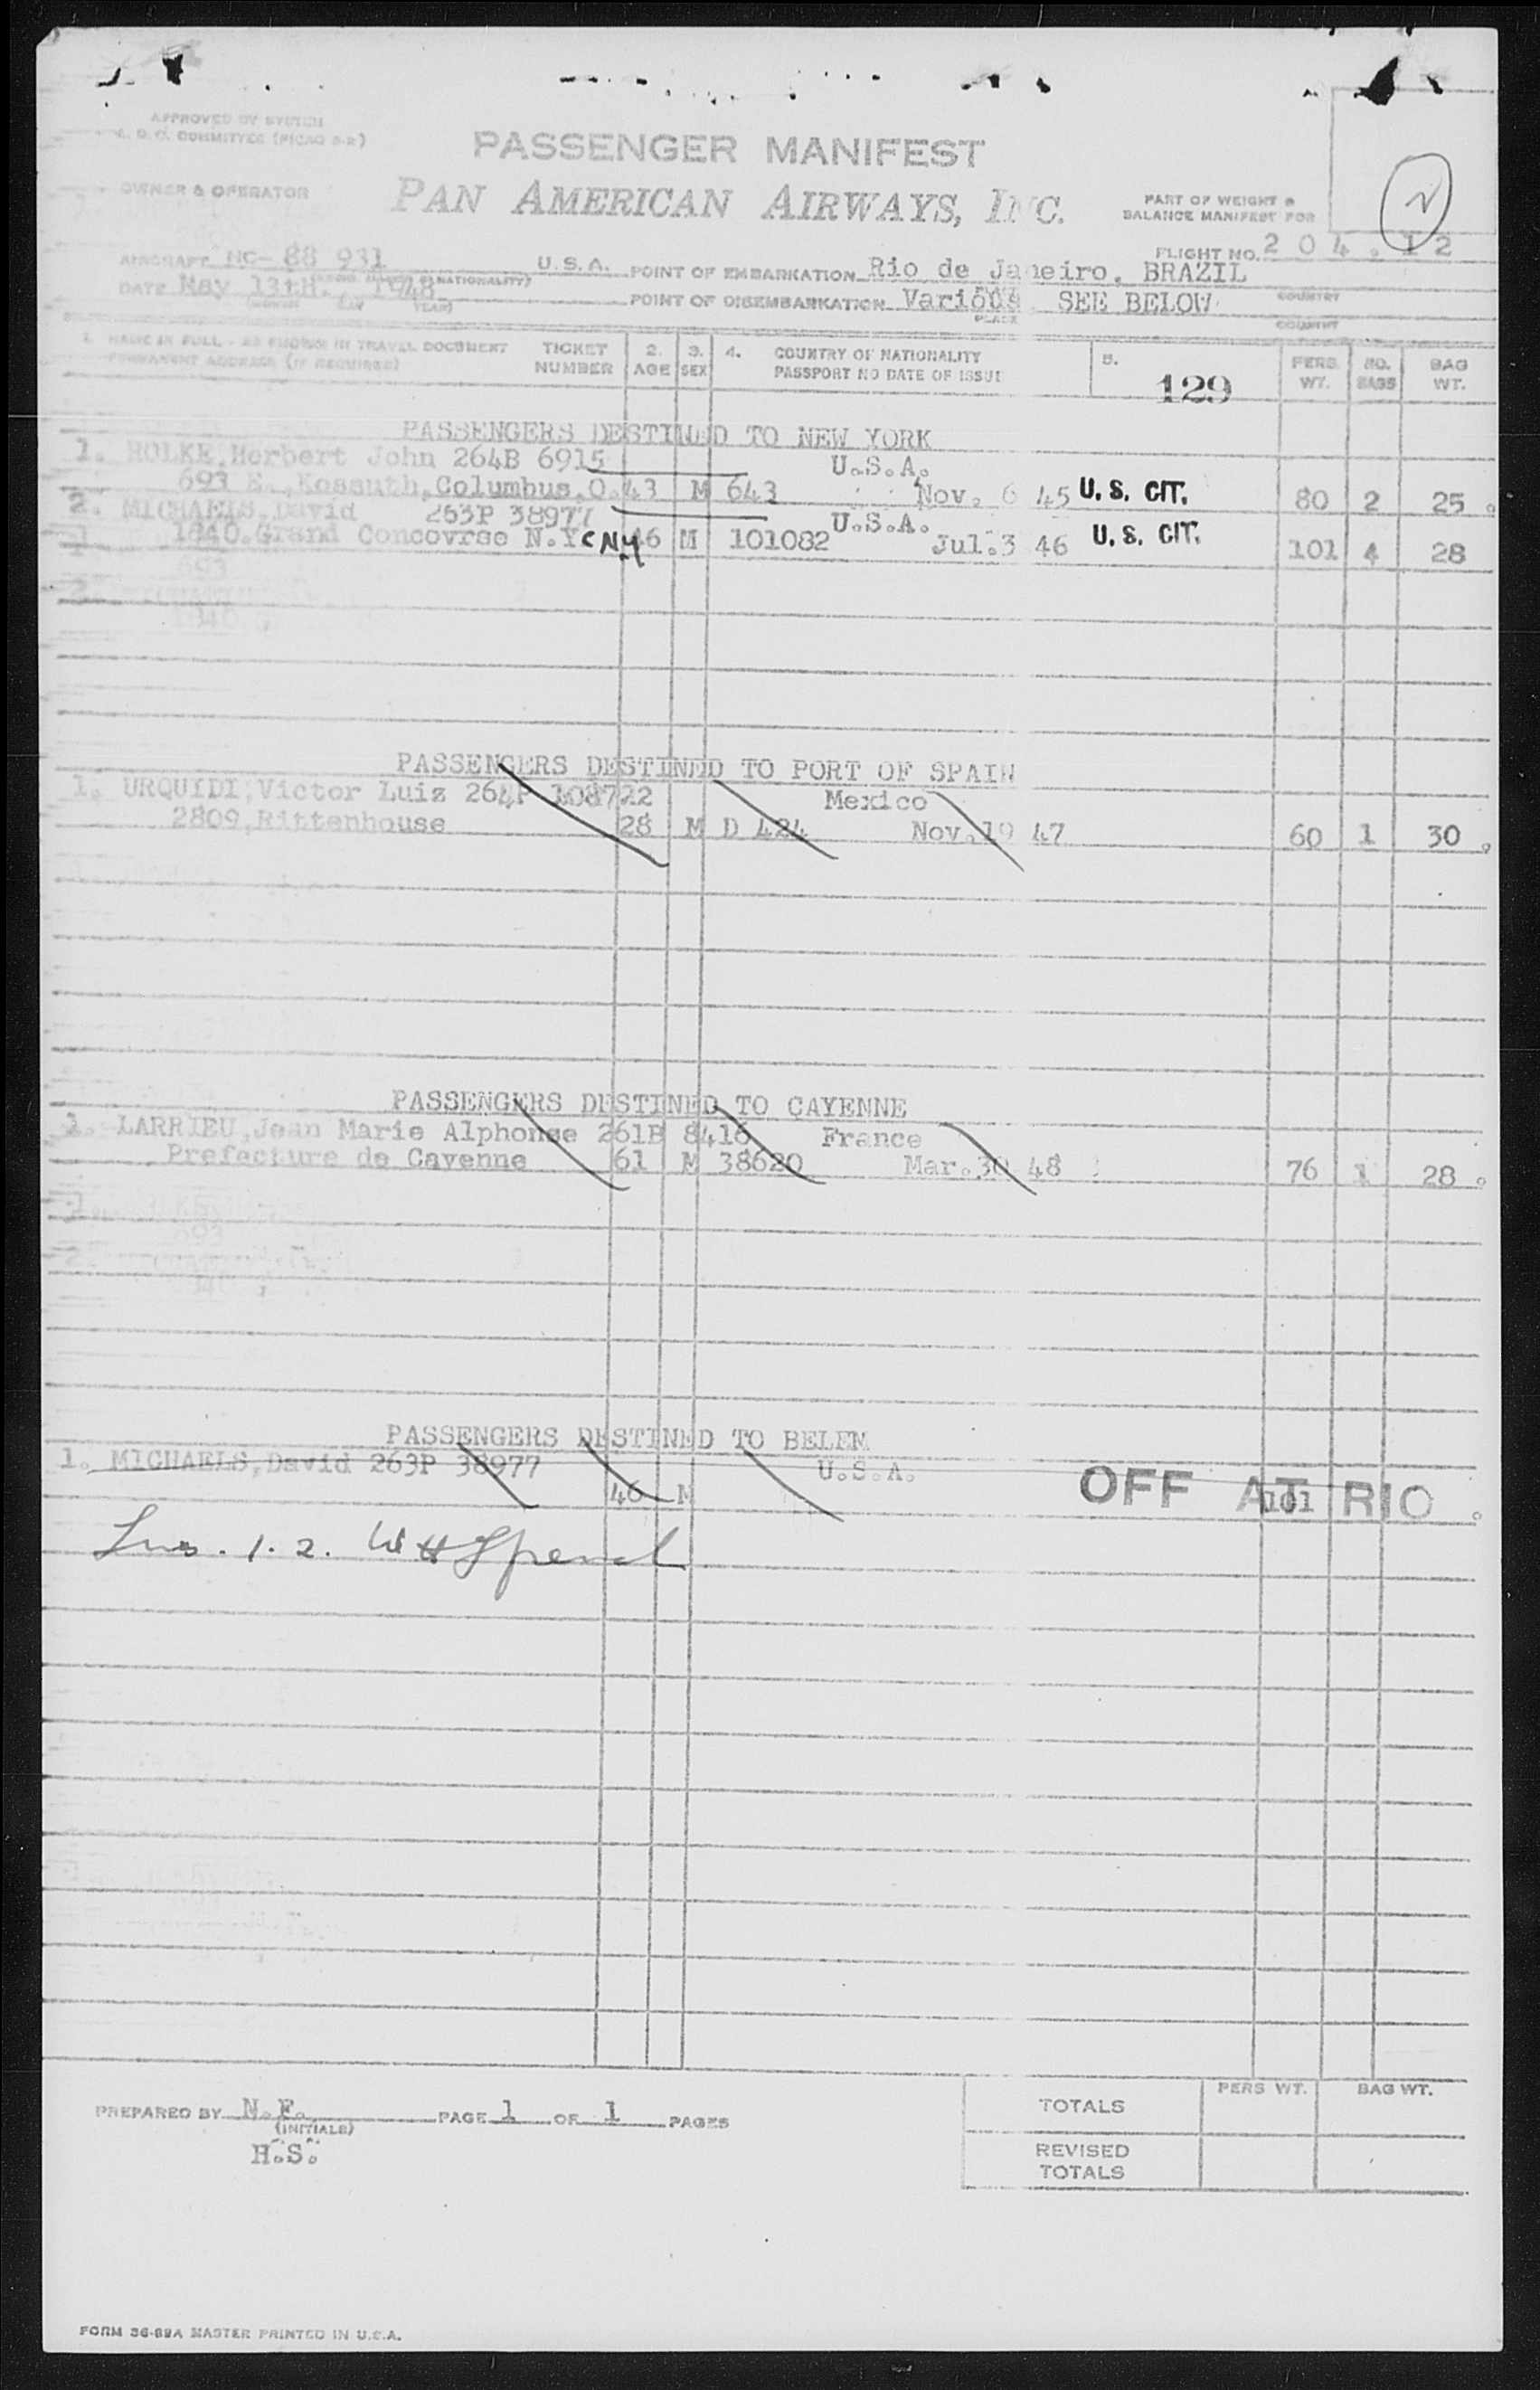 APPROVED BY SYSTEM
C. O. C. COMMITTEE (PICAO S-2)
PASSENGER MANIFEST
OWNER & OPERATOR
PAN AMERICAN AIRWAYS, INC.
PART OF WEIGHT &
BALANCE MANIFEST FOR
FLIGHT NO. 204.12
AIRCRAFT NC- 88 931 U.S.A. POINT OF EMBARKATION Rio de Janeiro, BRAZIL
NATIONALITY) COUNTRY
DATE May 13tH. 1948 POINT OF DISEMBARKATION Various SEE BELOW
YEAR) PLACE COUNTRY
1. NAME IN FULL - AS SHOWN IN TRAVEL DOCUMENT TICKET 2. 3. 4. COUNTRY OF NATIONALITY 5. PERS. NO. BAG
PERMANENT ADDRESS (IF REQUIRED) NUMBER AGE SEX PASSPORT NO DATE OF ISSUE 129 WT. BAGS WT.
PASSENGERS DESTINED TO NEW YORK
1. HOLKE, Herbert John 264B 6915 U.S.A.
693 E., Kossuth, Columbus, O. 43 M 643 Nov. 6 45 U.S. CIT. 80 2 25.
2. MICHAELS, David 263P 38977 U.S.A.
1840. Grand Concovrse N.Y C NY 46 M 101082 Jul. 3 46 U.S. CIT. 101 4 28
PASSENGERS DESTINED TO PORT OF SPAIN
1. URQUIDI, Victor Luiz 264P 108722 Mexico
2809, Rittenhouse 28 M D 424 Nov. 19 47 60 1 30.
PASSENGERS DESTINED TO CAYENNE
1. LARRIEU, Jean Marie Alphonse 261B 8416 France
Prefecture de Cayenne 61 M 38620 Mar. 30 48 76 1 28.
PASSENGERS DESTINED TO BELEM
1. MICHAELS, David 263P 38977 U.S.A.
46 M OFF AT RIO 101
1. 2.
PREPARED BY N. F. PAGE 1 OF 1 PAGES
(INITIALS)
H.S.
PERS WT. BAG WT.
TOTALS
REVISED
TOTALS
FORM 36-82A MASTER PRINTED IN U.S.A.